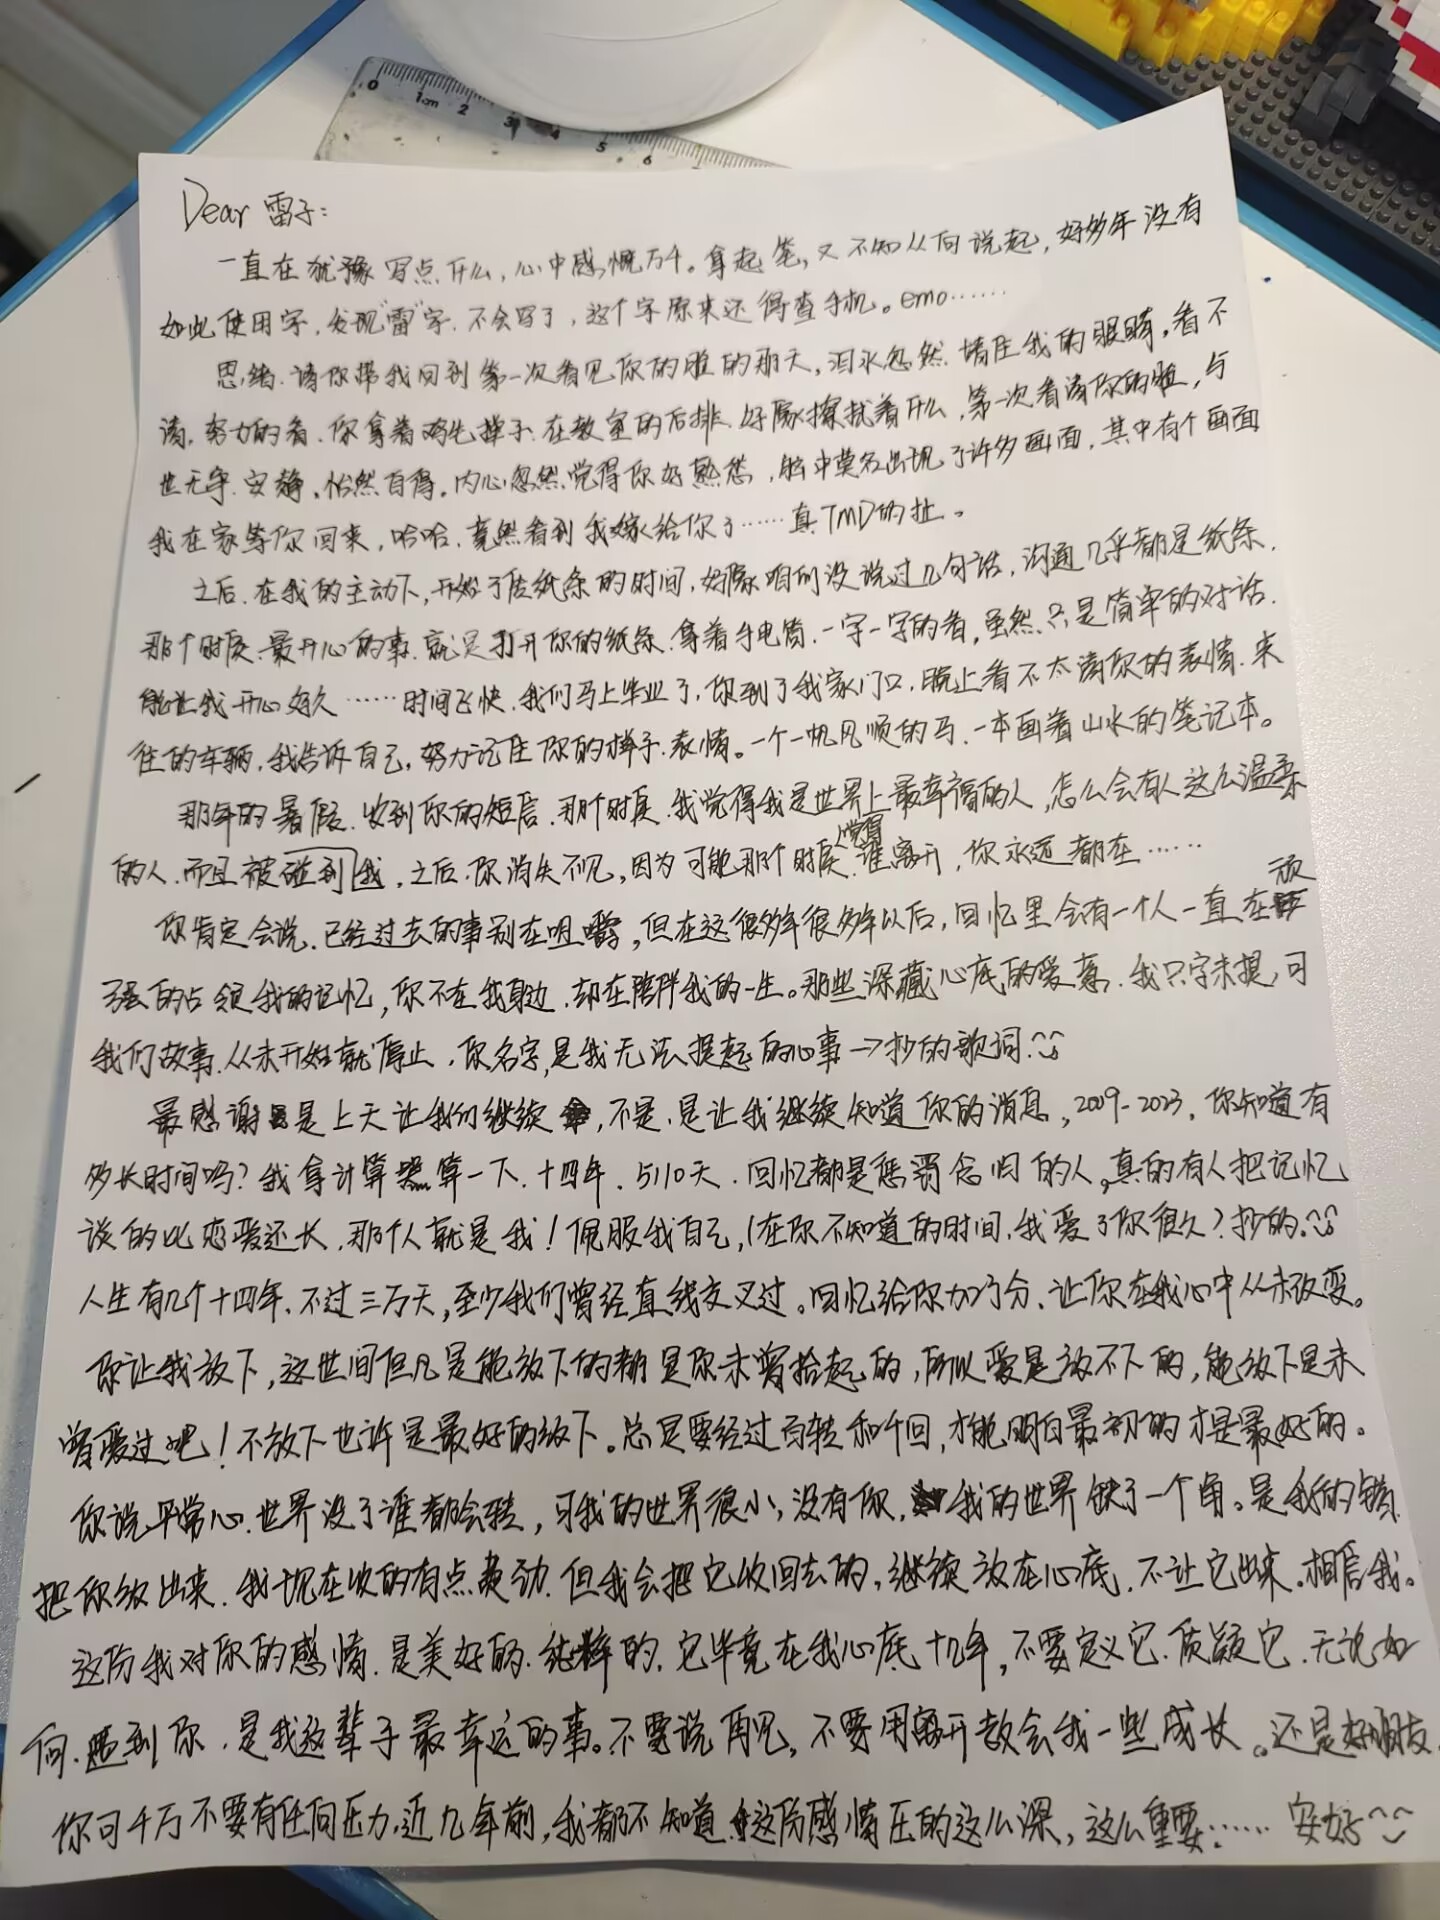 0 1cm 2 3 4 5 6
Dear 雷子:
一直在犹豫写点什么,心中感慨万千。拿起笔,又不知从何说起,好多年没有
如此使用字,发现"雷"字,不会写了,这个字原来还得查手机。emo……
思绪,请你带我回到第一次看见你的脸的那天,泪水忽然堵住我的眼睛,看不
清,努力的看,你拿着鸡毛掸子,在教室的后排,好像撩扰着什么,第一次看清你的脸,与
世无争,安静。怡然自得。内心忽然觉得你好熟悉,脑中莫名出现了许多画面,其中有个画面
我在家等你回来,哈哈,竟然看到我嫁给你了……真TMD的扯。
之后,在我的主动下,开始了传纸条的时间,好像咱们没说过几句话,沟通几乎都是纸条,
那个时候,最开心的事,就是打开你的纸条,拿着手电筒,一字一字的看,虽然只是简单的对话,
能让我开心好久……时间飞快,我们马上毕业了,你到了我家门口,晚上看不太清你的表情,来
往的车辆,我告诉自己,努力记住你的样子,表情。一个一帆风顺的马,一本画着山水的笔记本。
那年的暑假,收到你的短信,那个时候,我觉得我是世界上最幸福的人,怎么会有人这么温柔
的人,而且被碰到我,之后,你消失不见,因为可能那个时候,觉得谁离开,你永远都在……
你肯定会说,已经过去的事别在咀嚼,但在这很多年很多年以后,回忆里会有一个人一直在顽
强的占领我的记忆,你不在我身边,却在陪伴我的一生。那些深藏心底的爱慕,我只字未提,可
我们故事,从未开始就停止,你名字,是我无法提起的心事→抄的歌词.
最感谢是上天让我们继续,不是,是让我继续知道你的消息,2009-2023,你知道有
多长时间吗?我拿计算器算一下,十四年,5110天,回忆都是惩罚念旧的人,真的有人把记忆
谈的比恋爱还长,那个人就是我!佩服我自己,(在你不知道的时间,我爱了你很久?抄的.
人生有几个十四年,不过三万天,至少我们曾经直线交叉过。回忆给你加了分,让你在我心中从未改变。
你让我放下,这世间但凡是能放下的都是你未曾拾起的,所以爱是放不下的,能放下是未
曾爱过吧!不放下也许是最好的放下。总是要经过百转和千回,才能明白最初的才是最好的。
你说平常心,世界没了谁都会转,可我的世界很小,没有你,我的世界缺了一个角。是我的错,
把你放出来,我现在收的有点费劲,但我会把它收回去的,继续放在心底,不让它出来,相信我。
这份我对你的感情,是美好的,纯粹的,它毕竟在我心底十几年,不要定义它,质疑它,无论如
何,遇到你,是我这辈子最幸运的事。不要说再见,不要用离开教会我一些成长。还是好朋友,
你可千万不要有任何压力,近几年前,我都不知道,这份感情压的这么深,这么重要…… 安好